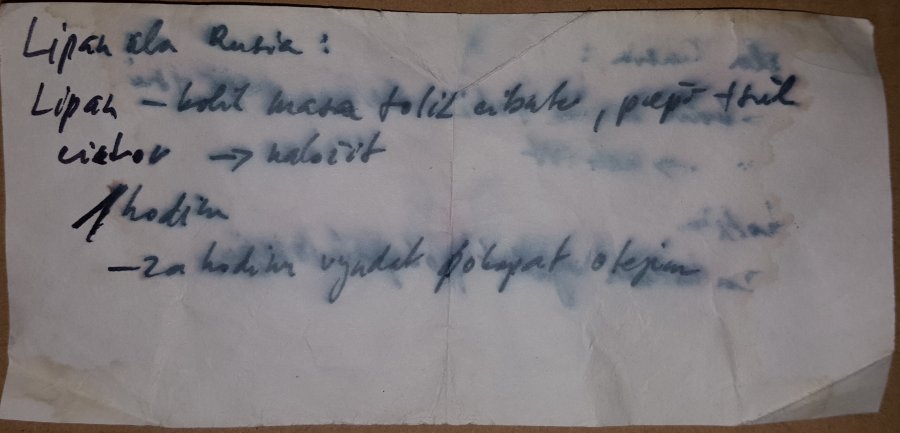 Lipan ala Rusia:
Lipan – kolik masa tolik cibule, pepř + sůl
citron → naložit
1 hodinu
– za hodinu vyndat pokapat olejem